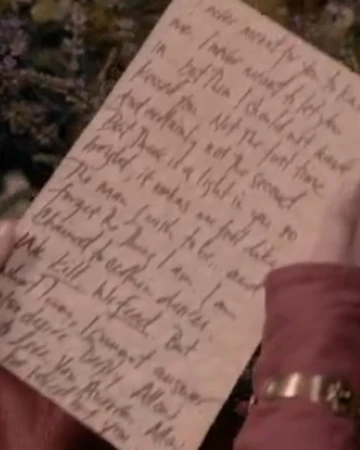 I never meant for you to
me. I never meant to let you
in. but then I should not have
kissed you. Not the first time
And certainly not the second
But there is a light in you, so
bright, it makes me feel like
The man I wish to be... and
forget the thing I am. I am
chained to certain desires.
We kill. We feed. But
I cannot answer
desire. Deny. Allow
love you Allow
you